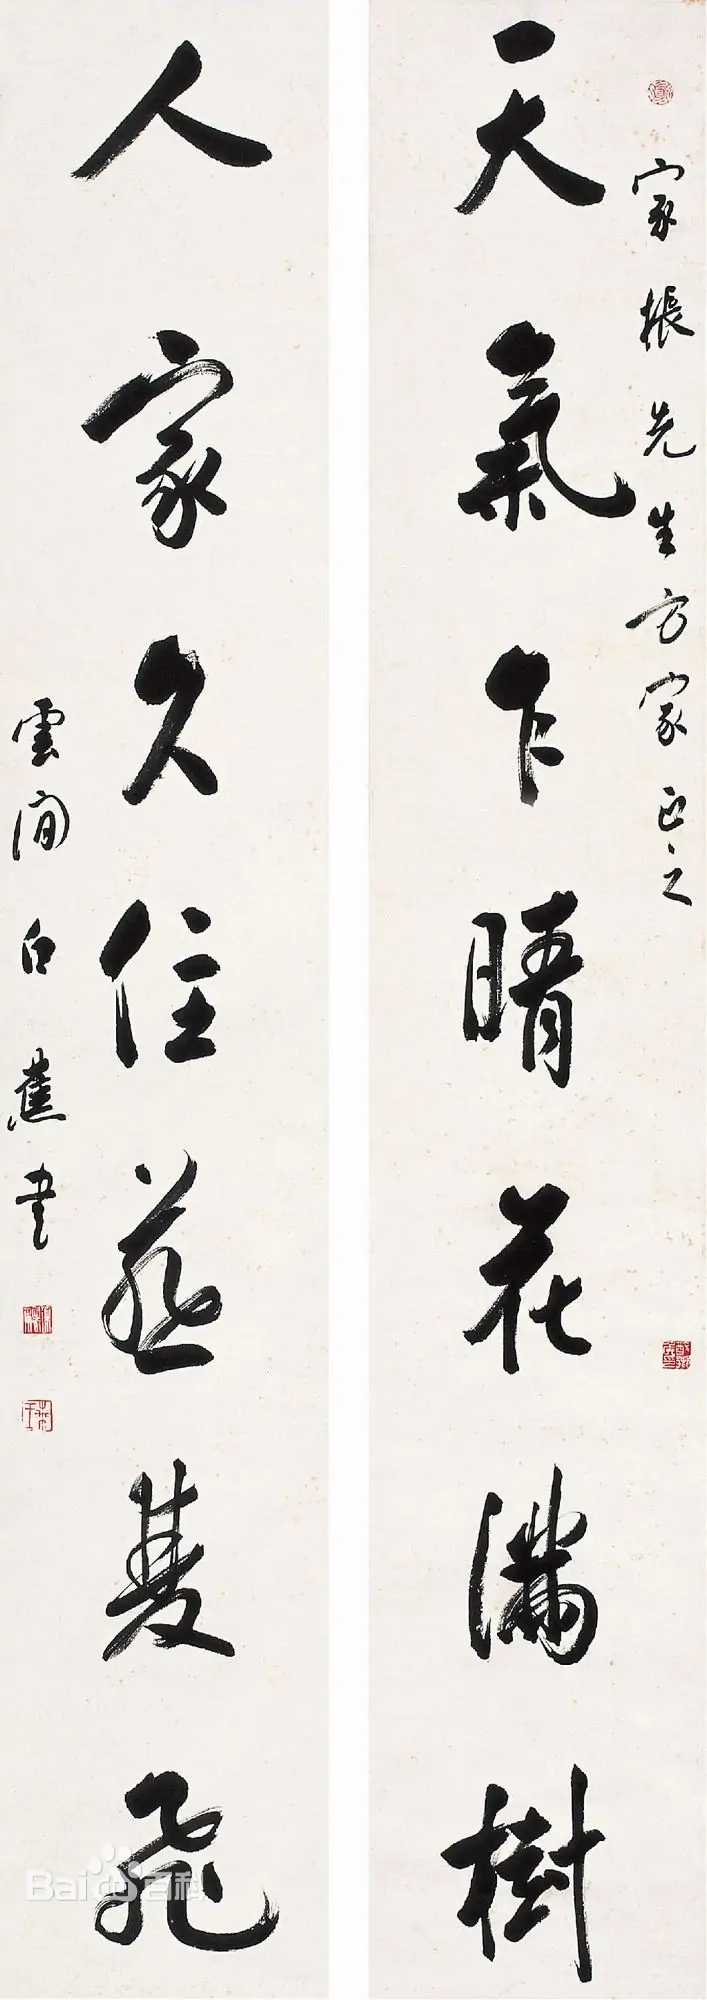 家棖先生方家正之
天氣乍晴花滿樹
人家久住燕雙飛
雲间白蕉書
Bai百科